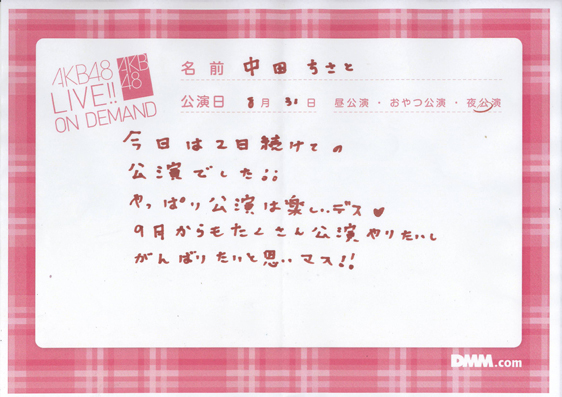 AKB48
LIVE!!
ON DEMAND
AKB
48
名前 中田 ちさと
公演日 8月 31日 昼公演・おやつ公演・夜公演
今日は2日続けての
公演でした!!
やっぱり公演は楽しいデス♥
9月からもたくさん公演やりたいし
がんばりたいと思いマス!!
DMM.com